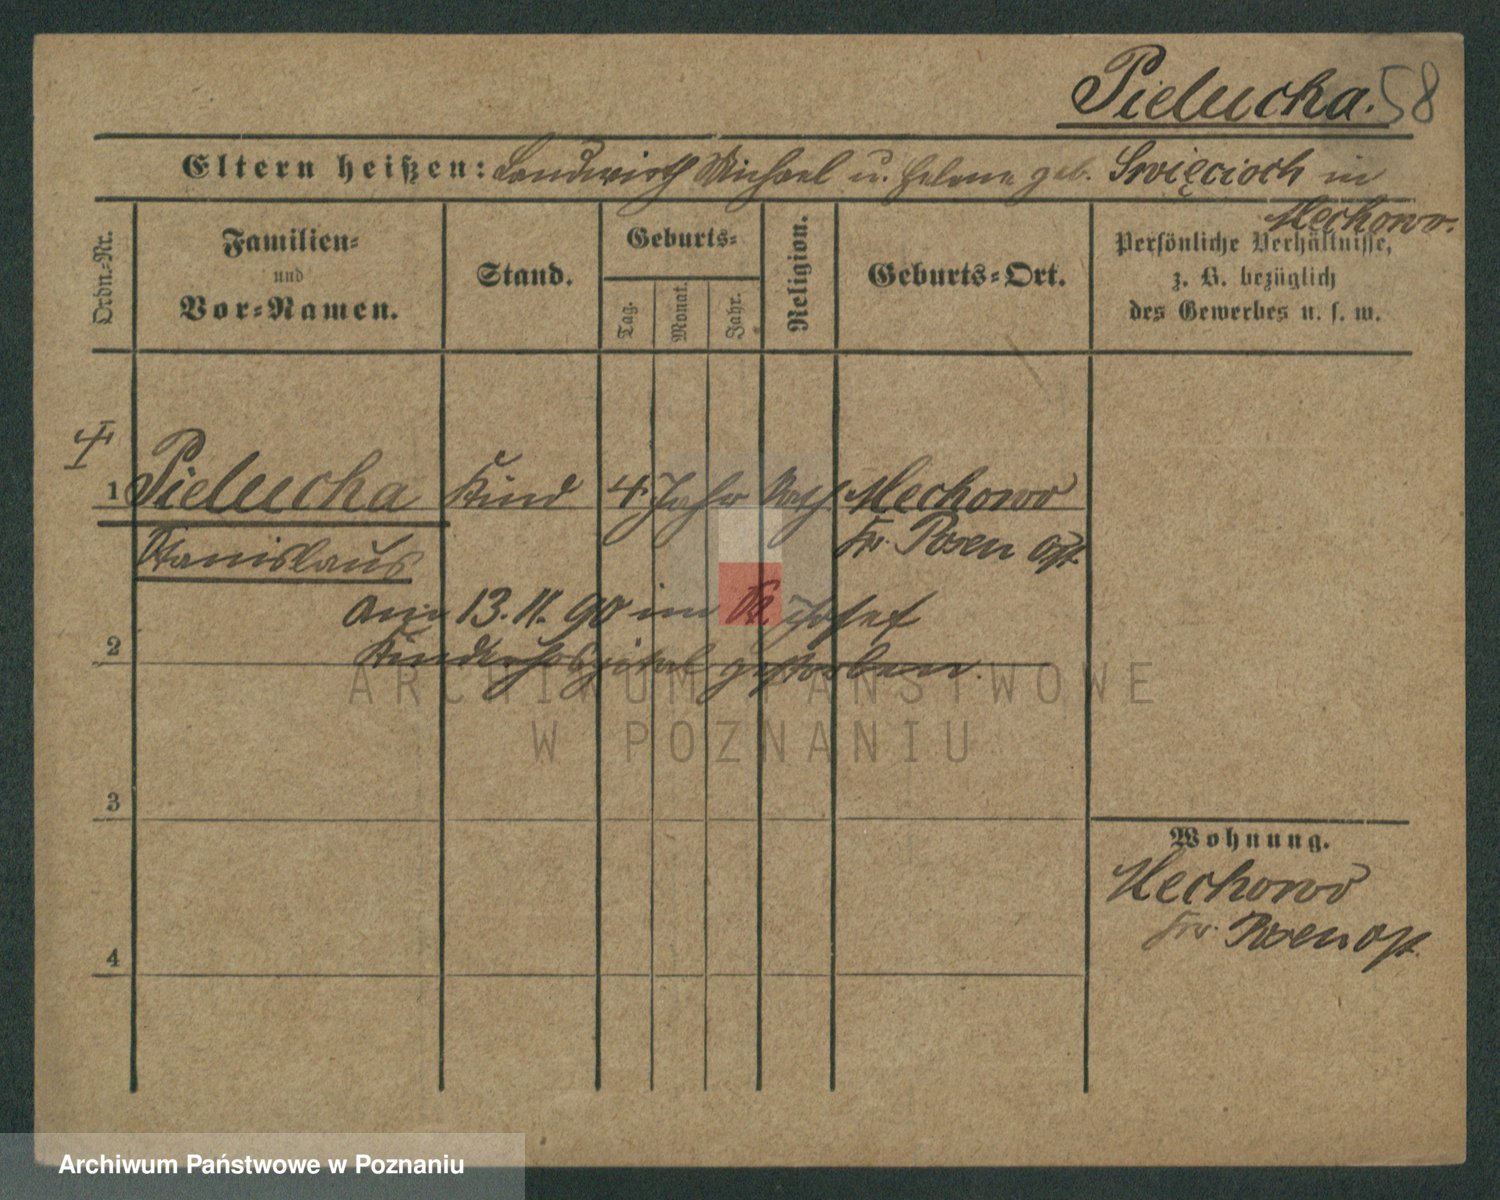 Pielucha. 58
Eltern heißen: Landwirth Michael u. Helene geb. Swięcioch in
Mechowo.
Ordn.-Nr.
Familien-
und
Vor-Namen.
Stand.
Geburts-
Tag.
Monat.
Jahr.
Religion.
Geburts-Ort.
Persönliche Verhältnisse,
z. B. bezüglich
des Gewerbes u. s. w.
1 Pielucha Kind 4 Jahr kath Mechowo
Kr. Posen Ost.
Stanislaus
am 13. 11. 90 im St. Josef
2
Kinderhospital gestorben.
ARCHIWUM PAŃSTWOWE
W POZNANIU
3
Wohnung.
Mechowo
Kr. Posen Ost.
4
Archiwum Państwowe w Poznaniu